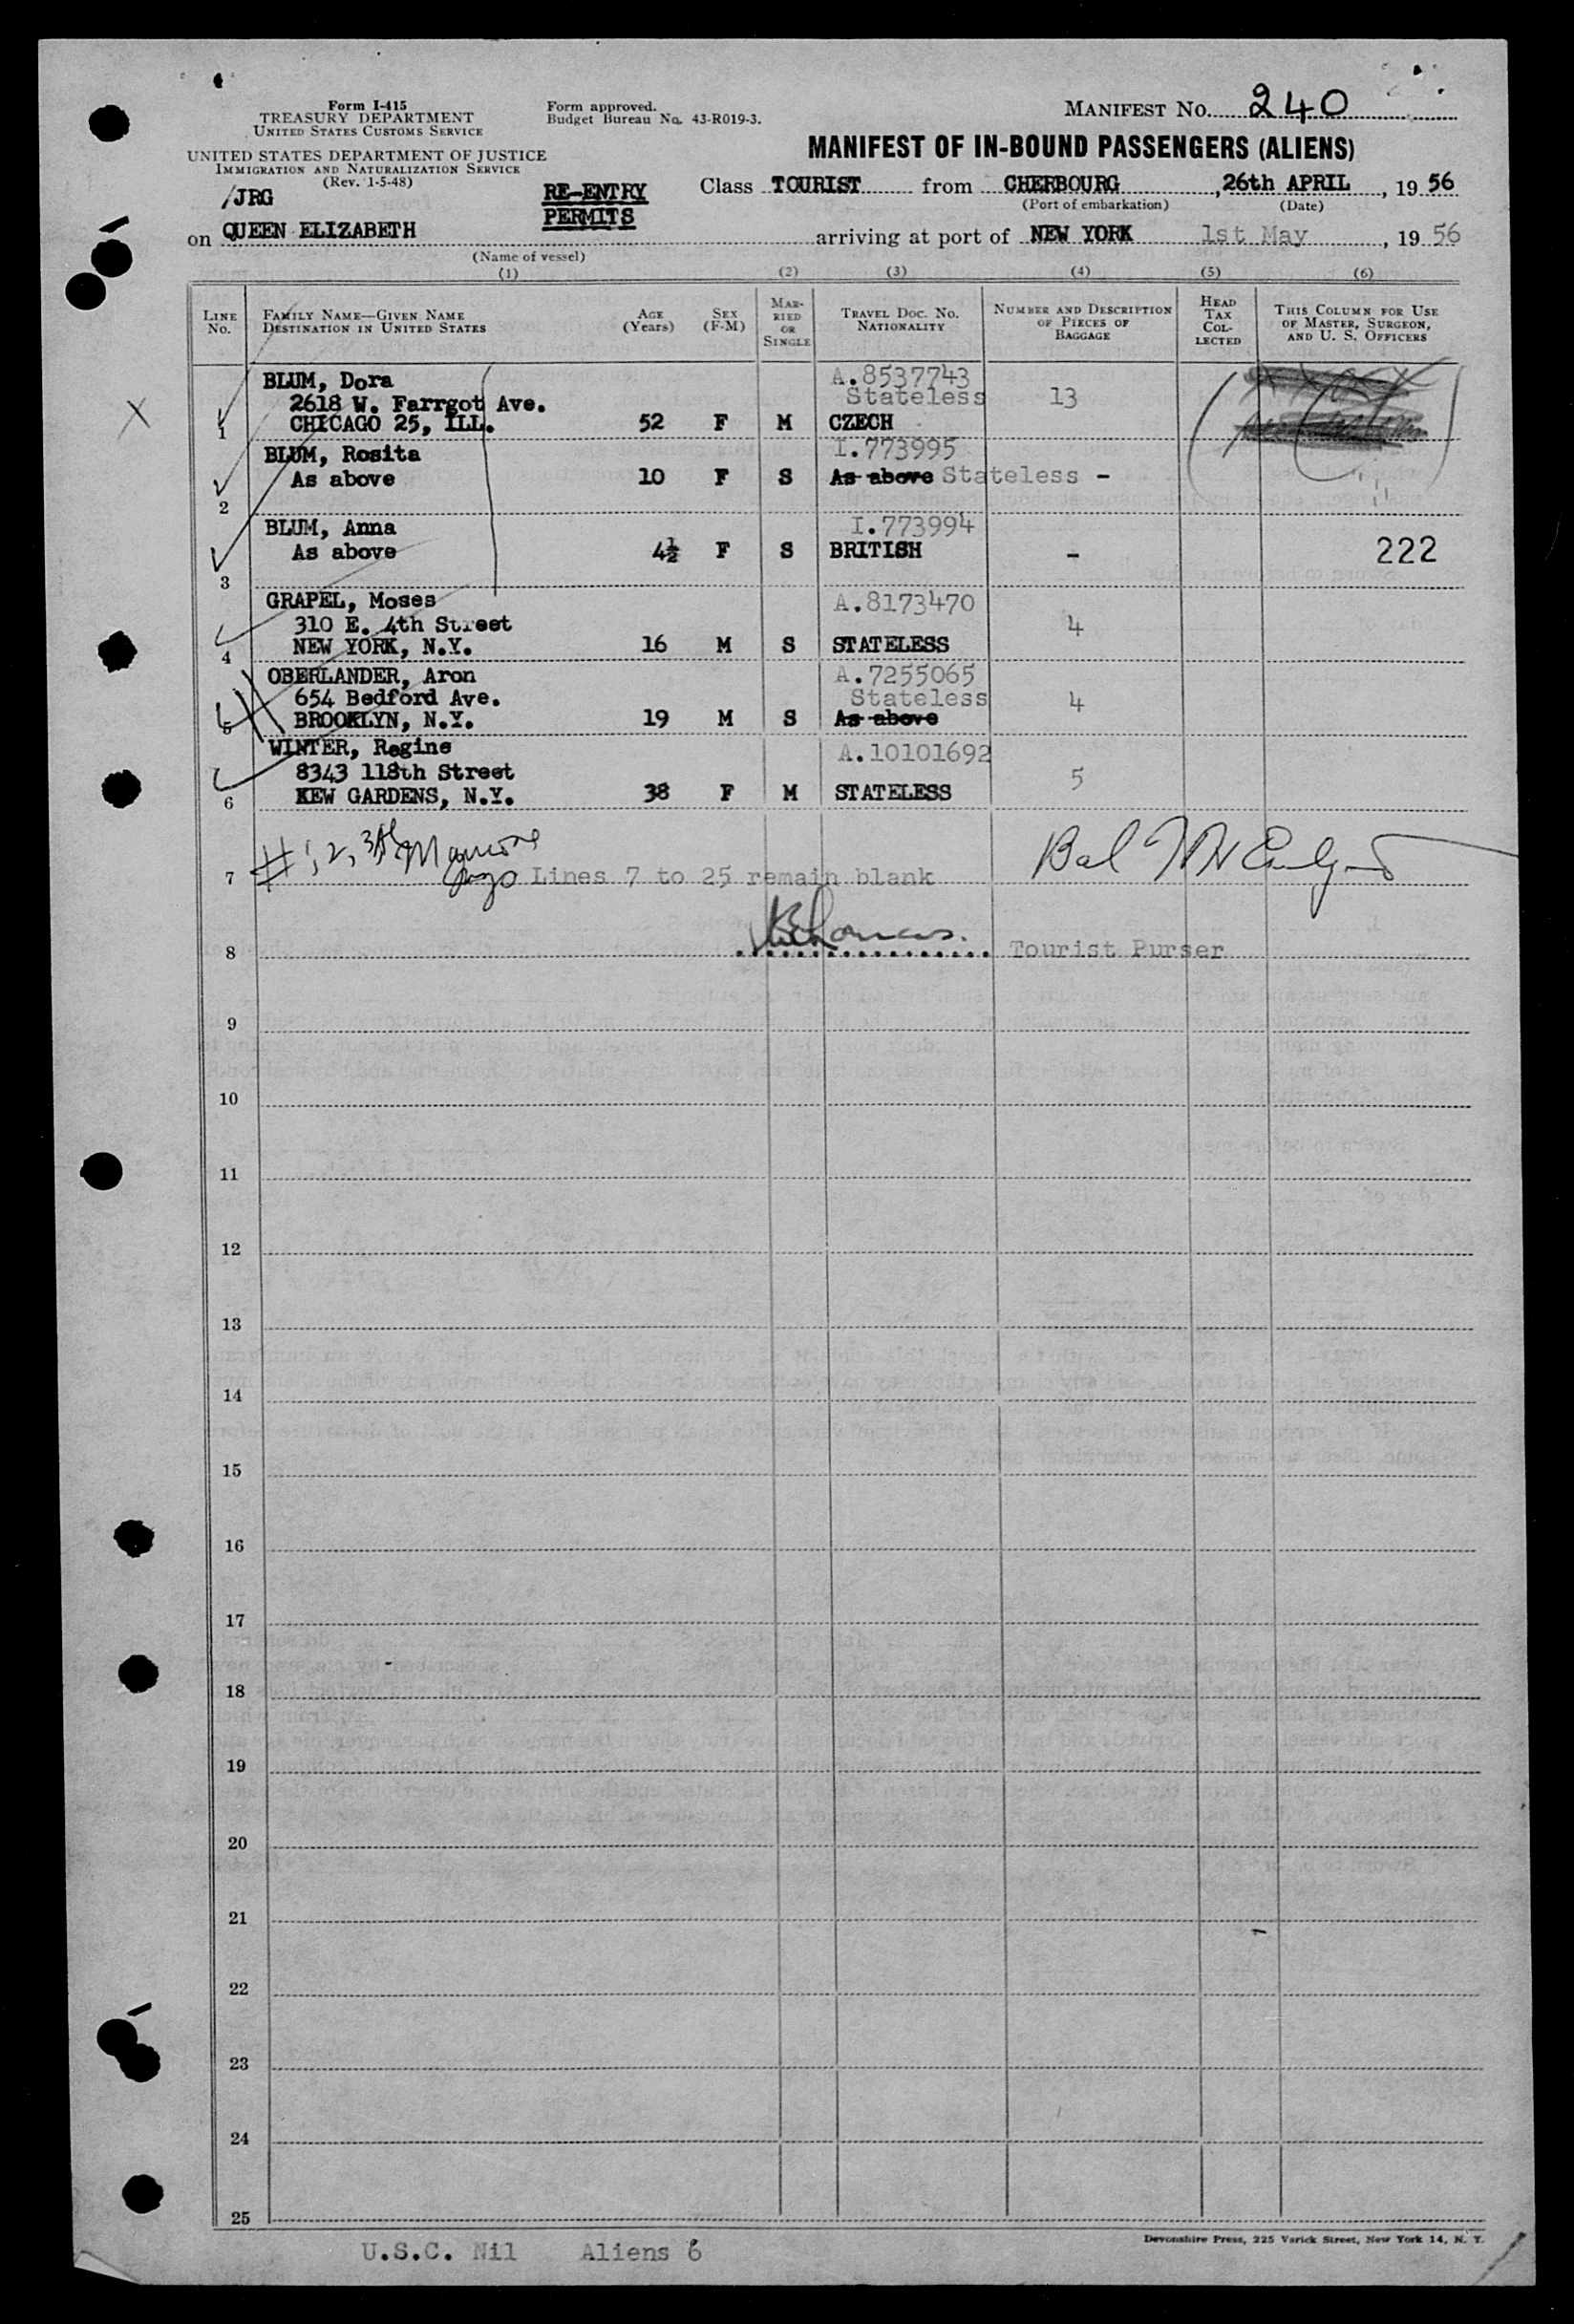 Form I-415
TREASURY DEPARTMENT
UNITED STATES CUSTOMS SERVICE
Form approved.
Budget Bureau No. 43-R019-3.
MANIFEST NO. 240
UNITED STATES DEPARTMENT OF JUSTICE
IMMIGRATION AND NATURALIZATION SERVICE
(Rev. 1-5-48)
MANIFEST OF IN-BOUND PASSENGERS (ALIENS)
/JRG
RE-ENTRY
PERMITS
Class TOURIST from CHERBOURG, 26th APRIL, 1956
(Port of embarkation) (Date)
on QUEEN ELIZABETH arriving at port of NEW YORK 1st May, 1956
(Name of vessel)
(1) (2) (3) (4) (5) (6)
LINE No.
FAMILY NAME—GIVEN NAME
DESTINATION IN UNITED STATES
AGE (Years)
SEX (F-M)
MARRIED OR SINGLE
TRAVEL DOC. NO. NATIONALITY
NUMBER AND DESCRIPTION OF PIECES OF BAGGAGE
HEAD TAX COLLECTED
THIS COLUMN FOR USE OF MASTER, SURGEON, AND U. S. OFFICERS
X
BLUM, Dora A.8537743
2618 W. Farrgot Ave. Stateless 13
1 CHICAGO 25, ILL. 52 F M CZECH
BLUM, Rosita I.773995
As above 10 F S As above Stateless -
2
BLUM, Anna I.773994
As above 4½ F S BRITISH - 222
3
GRAPEL, Moses A.8173470
310 E. 4th Street 4
4 NEW YORK, N.Y. 16 M S STATELESS
OBERLANDER, Aron A.7255065
654 Bedford Ave. Stateless 4
5 BROOKLYN, N.Y. 19 M S As above
WINTER, Regine A.10101692
8343 118th Street 5
6 KEW GARDENS, N.Y. 38 F M STATELESS
# 1, 2, 3
7 Lines 7 to 25 remain blank
8 Tourist Purser
9
10
11
12
13
14
15
16
17
18
19
20
21
22
23
24
25
U.S.C. Nil Aliens 6
Devonshire Press, 225 Varick Street, New York 14, N. Y.